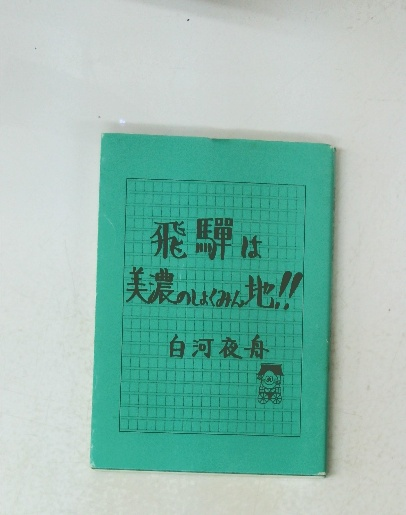 飛驒は
美濃のしょくみん地!!
白河夜舟